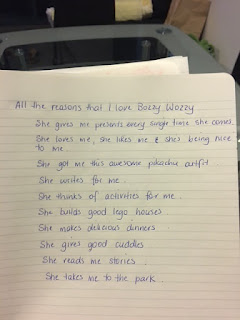 All the reasons that I love Bozzy Wozzy
She gives me presents every single time she comes.
She loves me, she likes me & shes being nice
to me.
She got me this awesome pikachu outfit
She writes for me.
She thinks of activities for me.
She builds good lego houses.
She makes delicious dinners.
She gives good cuddles
She reads me stories.
She takes me to the park.